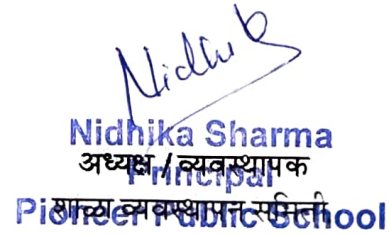 Nidhi
Nidhika Sharma
अध्यक्ष / व्यवस्थापक
Principal
शाळा व्यवस्थापन समिती
Pioneer Public School